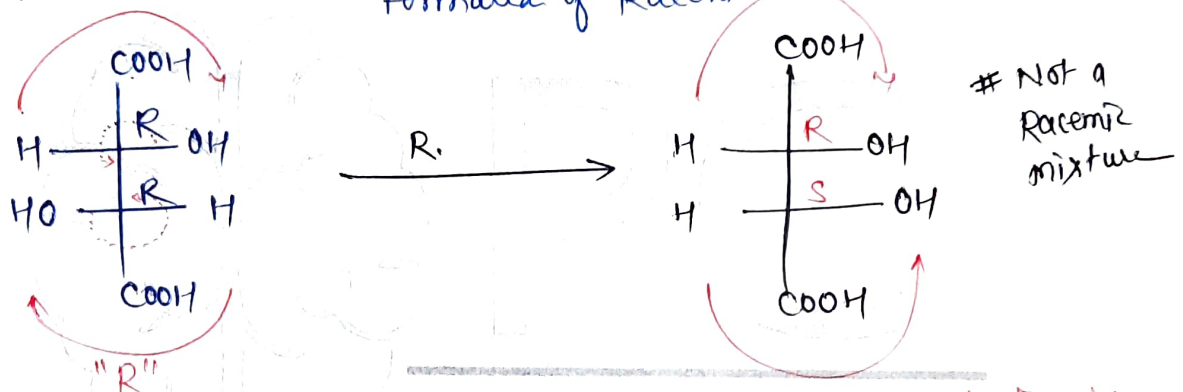 COOH
H R OH
HO R H
COOH
"R"
R.
COOH
H R OH
H S OH
COOH
# Not a
Racemic
mixture